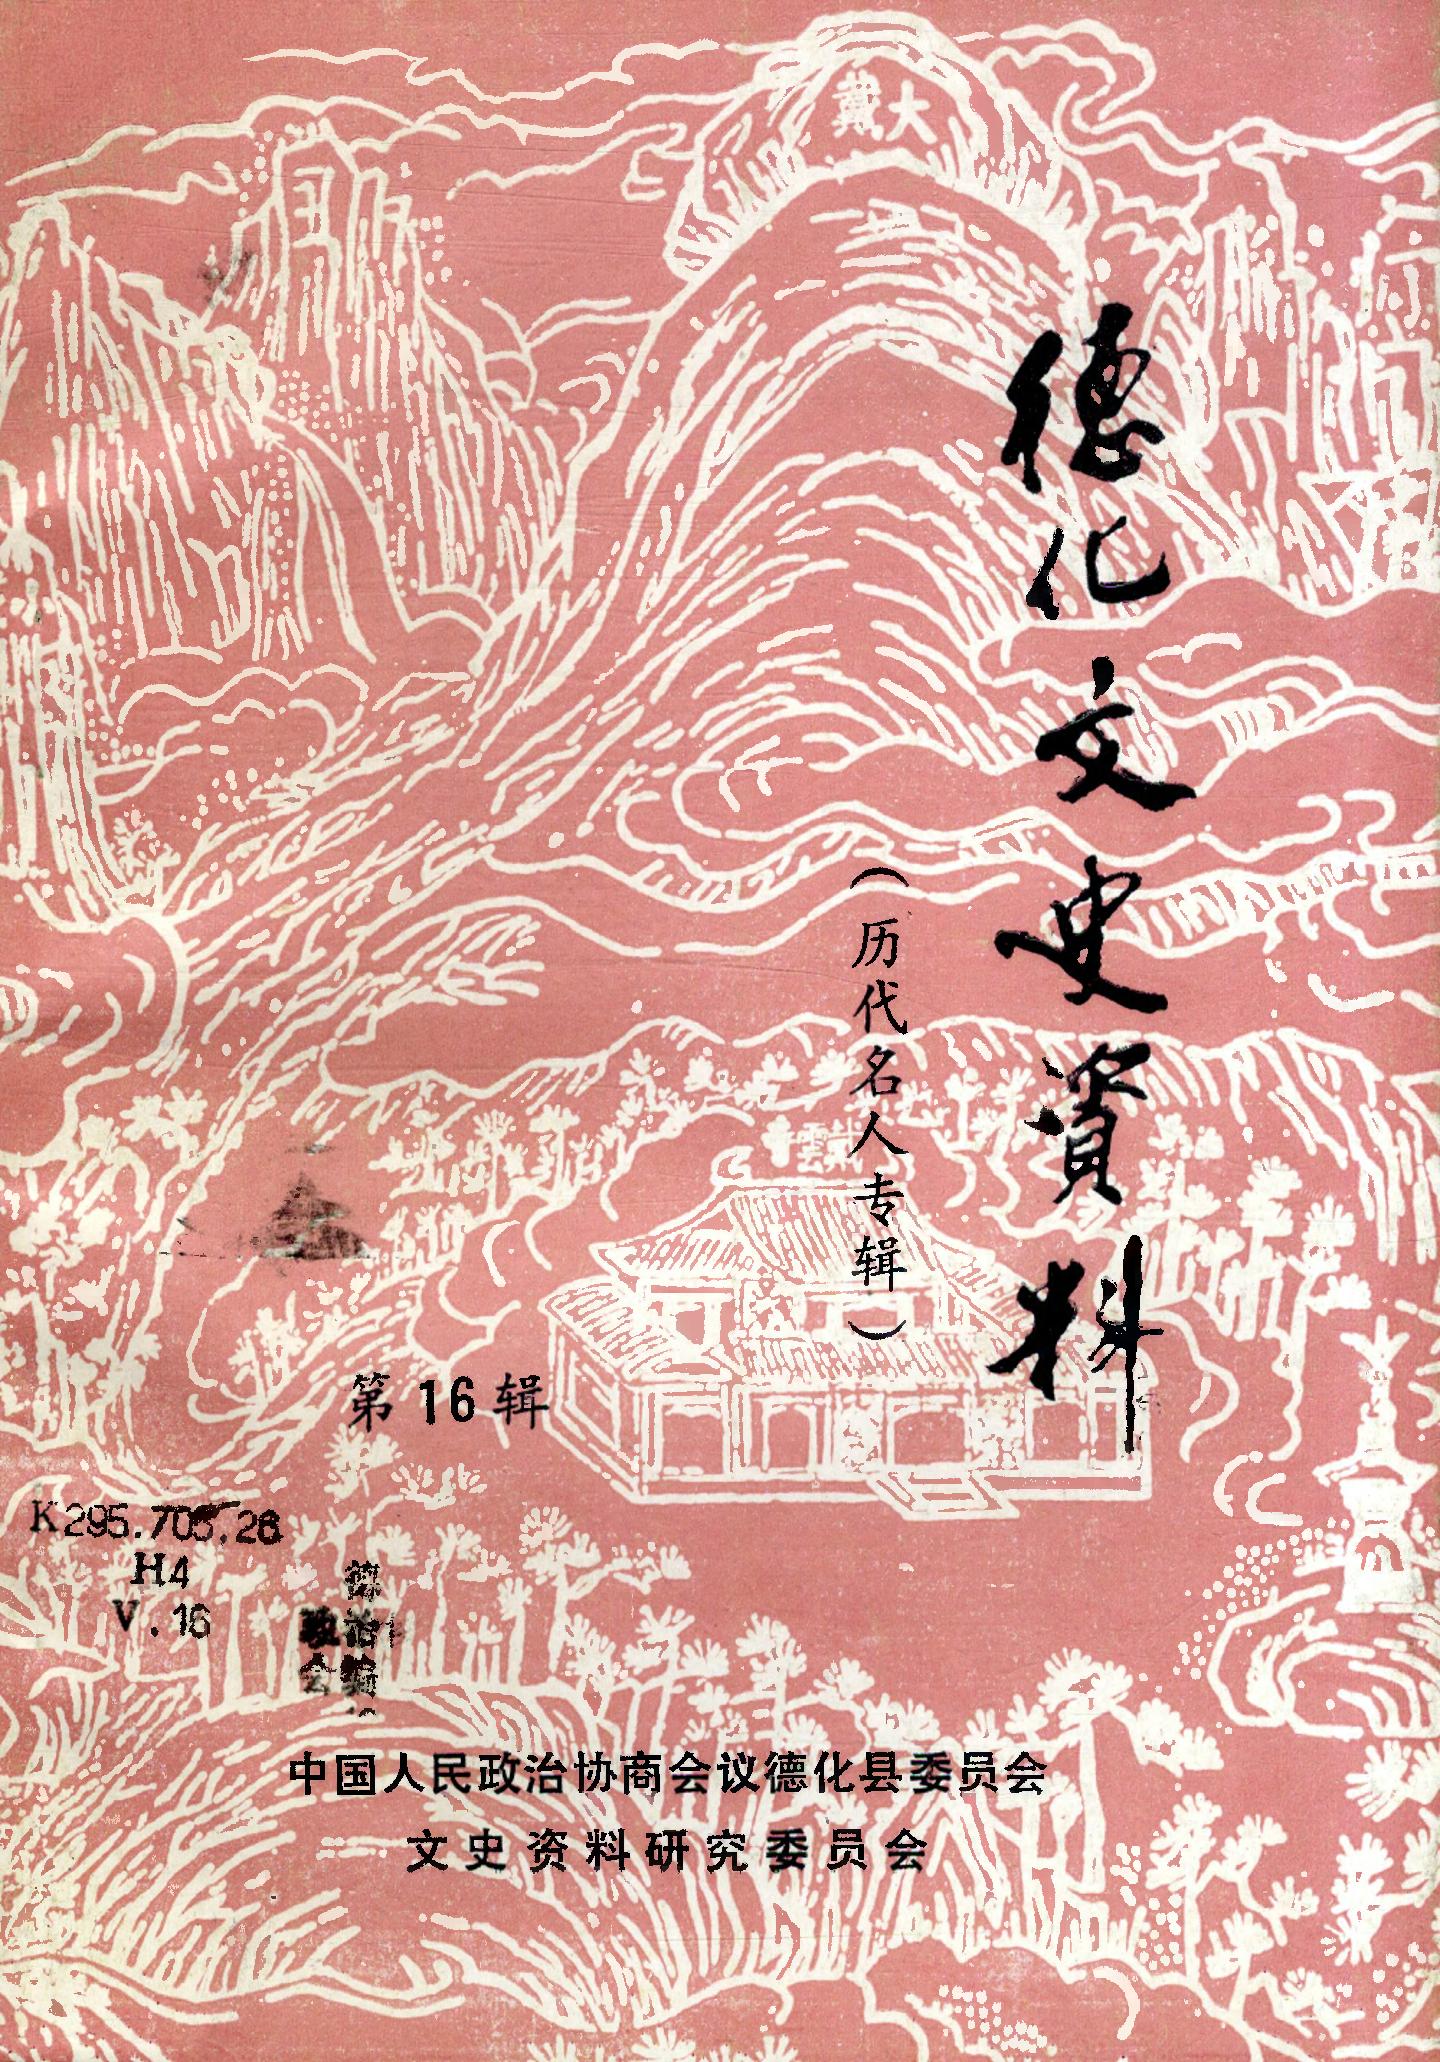 大戴
德化文史資料
（历代名人专辑）
雲戴
第16辑
K295.705.26
H4
V.16
中国人民政治协商会议德化县委员会
文史资料研究委员会